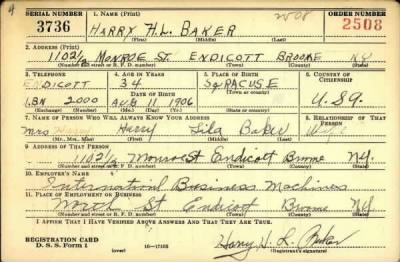 SERIAL NUMBER 1. NAME (Print) ORDER NUMBER
3736 HARRY H.L. BAKER 2508
(First) (Middle) (Last)
2. ADDRESS (Print)
1102½ MONROE ST. ENDICOTT BROOME N.Y.
(Number and street or R. F. D. number) (Town) (County) (State)
3. TELEPHONE 4. AGE IN YEARS 5. PLACE OF BIRTH 6. COUNTRY OF CITIZENSHIP
ENDICOTT 34 SYRACUSE
DATE OF BIRTH (Town or county)
I.B.N 2000 AUG 11 1906 N.Y. U.S.A.
(Exchange) (Number) (Mo.) (Day) (Yr.) (State or country)
7. NAME OF PERSON WHO WILL ALWAYS KNOW YOUR ADDRESS 8. RELATIONSHIP OF THAT PERSON
Mrs Harry Lila Baker Wife
(Mr., Mrs., Miss) (First) (Middle) (Last)
9. ADDRESS OF THAT PERSON
1102½ Monroe St Endicott Broome N.Y.
(Number and street or R. F. D. number) (Town) (County) (State)
10. EMPLOYER'S NAME
International Business Machines
11. PLACE OF EMPLOYMENT OR BUSINESS
North St Endicott Broome N.Y.
(Number and street or R. F. D. number) (Town) (County) (State)
I AFFIRM THAT I HAVE VERIFIED ABOVE ANSWERS AND THAT THEY ARE TRUE.
REGISTRATION CARD
D. S. S. Form 1 (over) 16—17105 Harry H. L. Baker
(Registrant's signature)